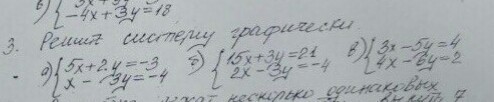 в) { 3x + 3y =
-4x + 3y = 18
3. Решит систему графически.
а) { 5x + 2y = -3
x - 3y = -4
б) { 15x + 3y = 21
2x - 3y = -4
в) { 3x - 5y = 4
4x - 6y = 2
лежат несколько одинаковых